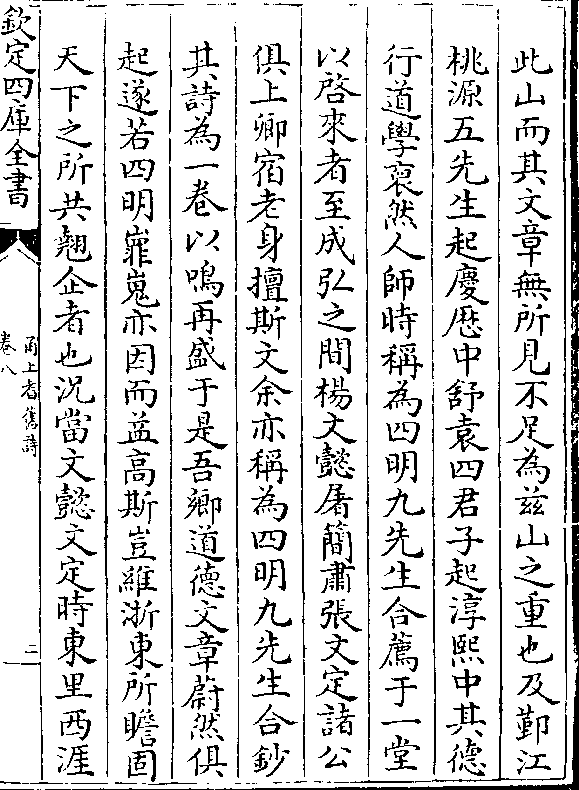 此山而其文章無所見不足為兹山之重也及鄞江
桃源五先生起慶厯中舒袁四君子起淳熙中其德
行道學裒然人師時稱為四明九先生合薦于一堂
以啓來者至成弘之間楊文懿屠簡肅張文定諸公
俱上卿宿老身擅斯文余亦稱為四明九先生合鈔
其詩為一卷以鳴再盛于是吾鄉道德文章蔚然俱
起遂若四明嶵嵬亦因而益高斯豈維浙東所瞻固
天下之所共翹企者也況當文懿文定時東里西涯
欽定四庫全書
甬上耆舊詩
卷八
二